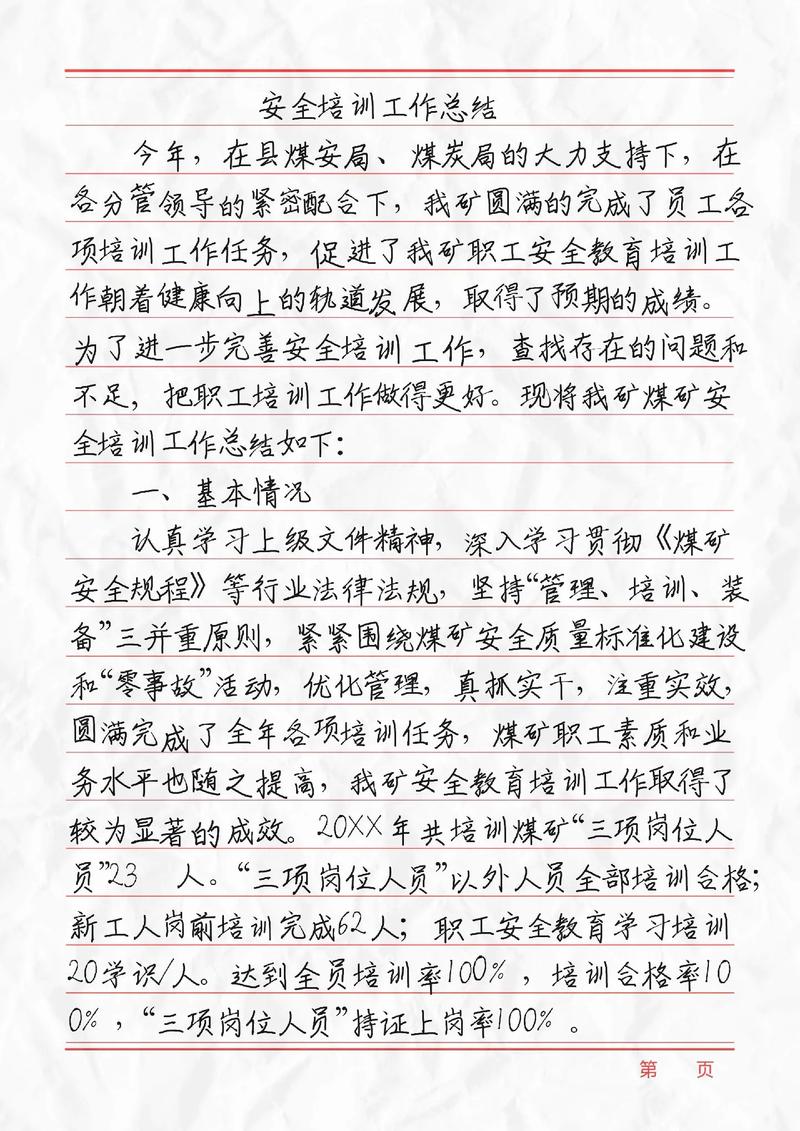 安全培训工作总结
今年，在县煤安局、煤炭局的大力支持下，在
各分管领导的紧密配合下，我矿圆满的完成了员工各
项培训工作任务，促进了我矿职工安全教育培训工
作朝着健康向上的轨道发展，取得了预期的成绩。
为了进一步完善安全培训工作，查找存在的问题和
不足，把职工培训工作做得更好。现将我矿煤矿安
全培训工作总结如下：
一、基本情况
认真学习上级文件精神，深入学习贯彻《煤矿
安全规程》等行业法律法规，坚持“管理、培训、装
备”三并重原则，紧紧围绕煤矿安全质量标准化建设
和“零事故”活动，优化管理，真抓实干，注重实效，
圆满完成了全年各项培训任务，煤矿职工素质和业
务水平也随之提高，我矿安全教育培训工作取得了
较为显著的成效。20XX年共培训煤矿“三项岗位人
员”23 人。“三项岗位人员”以外人员全部培训合格；
新工人岗前培训完成62人；职工安全教育学习培训
20学识/人。达到全员培训率100%，培训合格率10
0%，“三项岗位人员”持证上岗率100%。
第 页